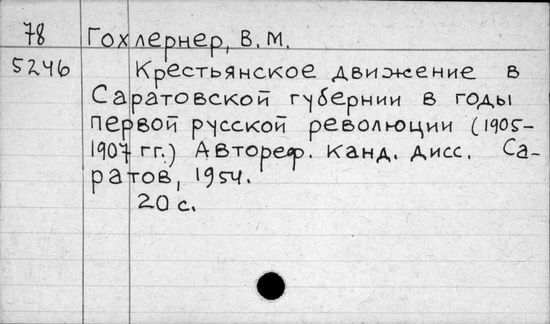 78 Гохлернер, В.М.
5246 Крестьянское движение в
Саратовской губернии в годы
первой русской революции (1905-
1907 гг.) Автореф. канд. дисс. Са-
ратов, 1954.
20 с.